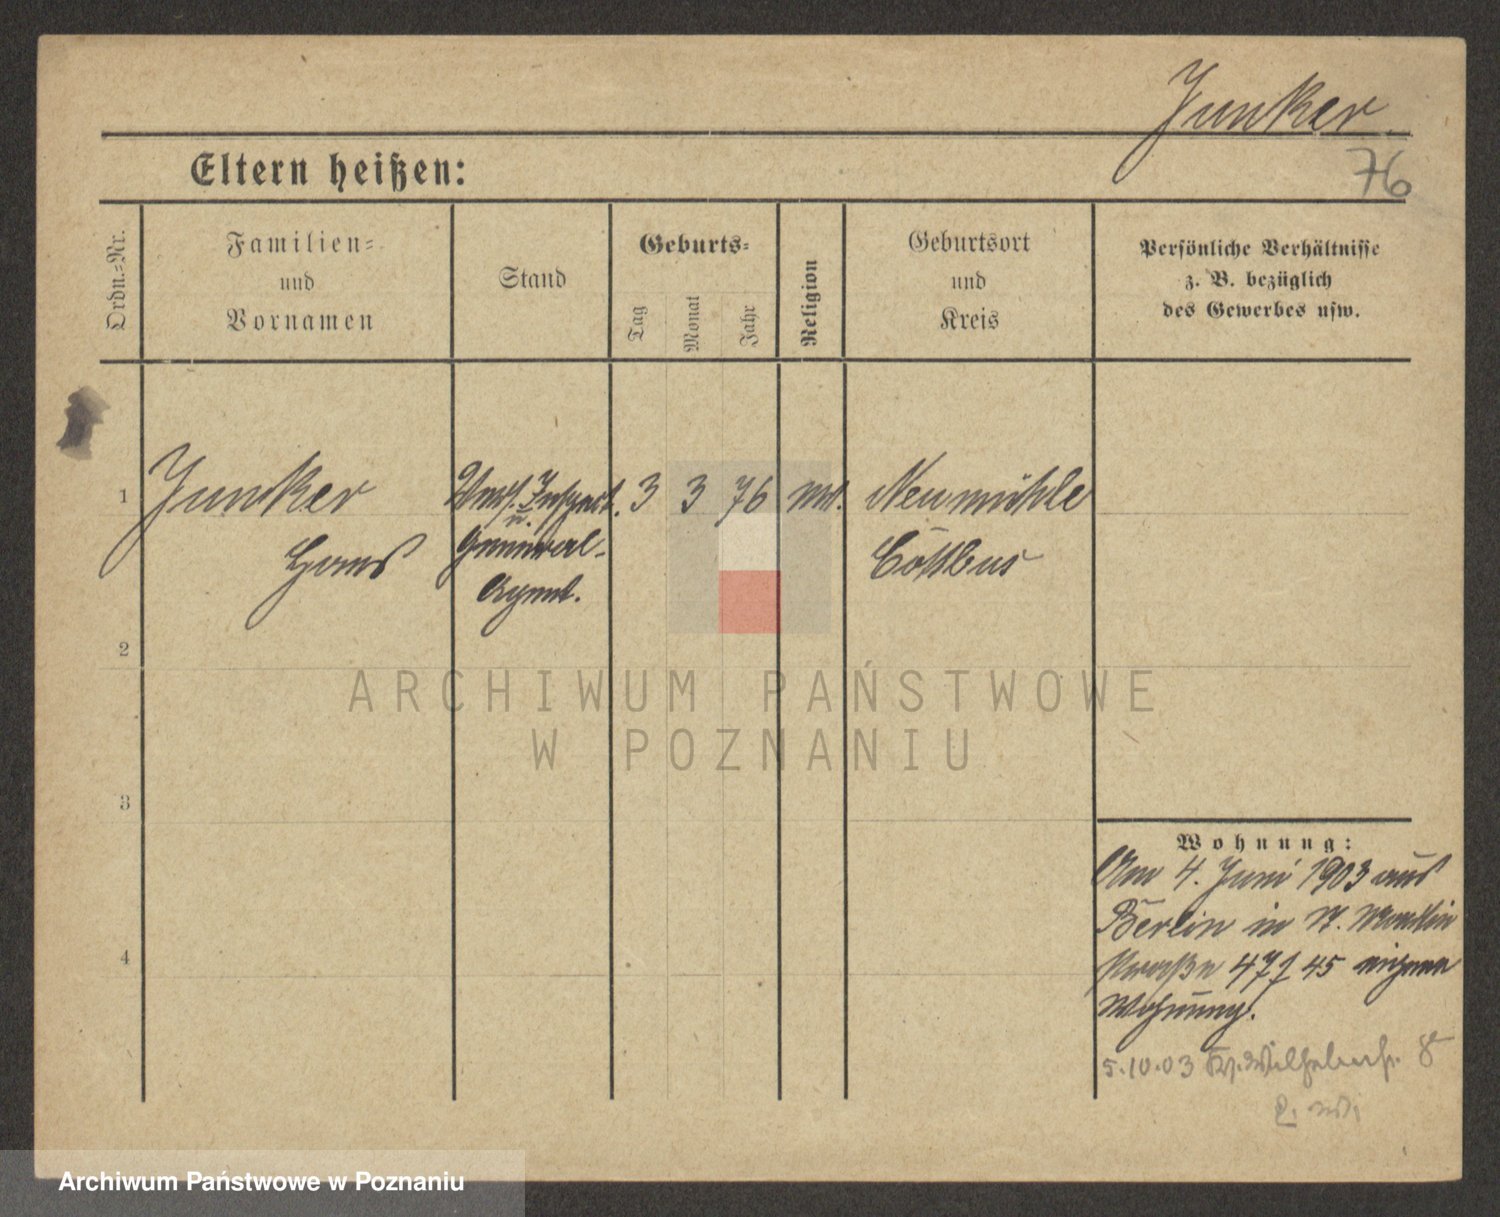 Junker
76
Eltern heißen:
Ordn.-Nr.
Familien-
und
Vornamen
Stand
Geburts-
Tag
Monat
Jahr
Religion
Geburtsort
und
Kreis
Persönliche Verhältnisse
z. B. bezüglich
des Gewerbes usw.
1
Junker
Hans
Vers. Inspect.
u.
General-
Agent.
3
3
76
ev.
Neumühle
Cottbus
2
3
4
ARCHIWUM PAŃSTWOWE
W POZNANIU
Wohnung:
Am 4. Juni 1903 aus
Berlin in St. Martin
straße 47 45 eigene
Wohnung.
5.10.03 Wilhelmstr. 8
Archiwum Państwowe w Poznaniu